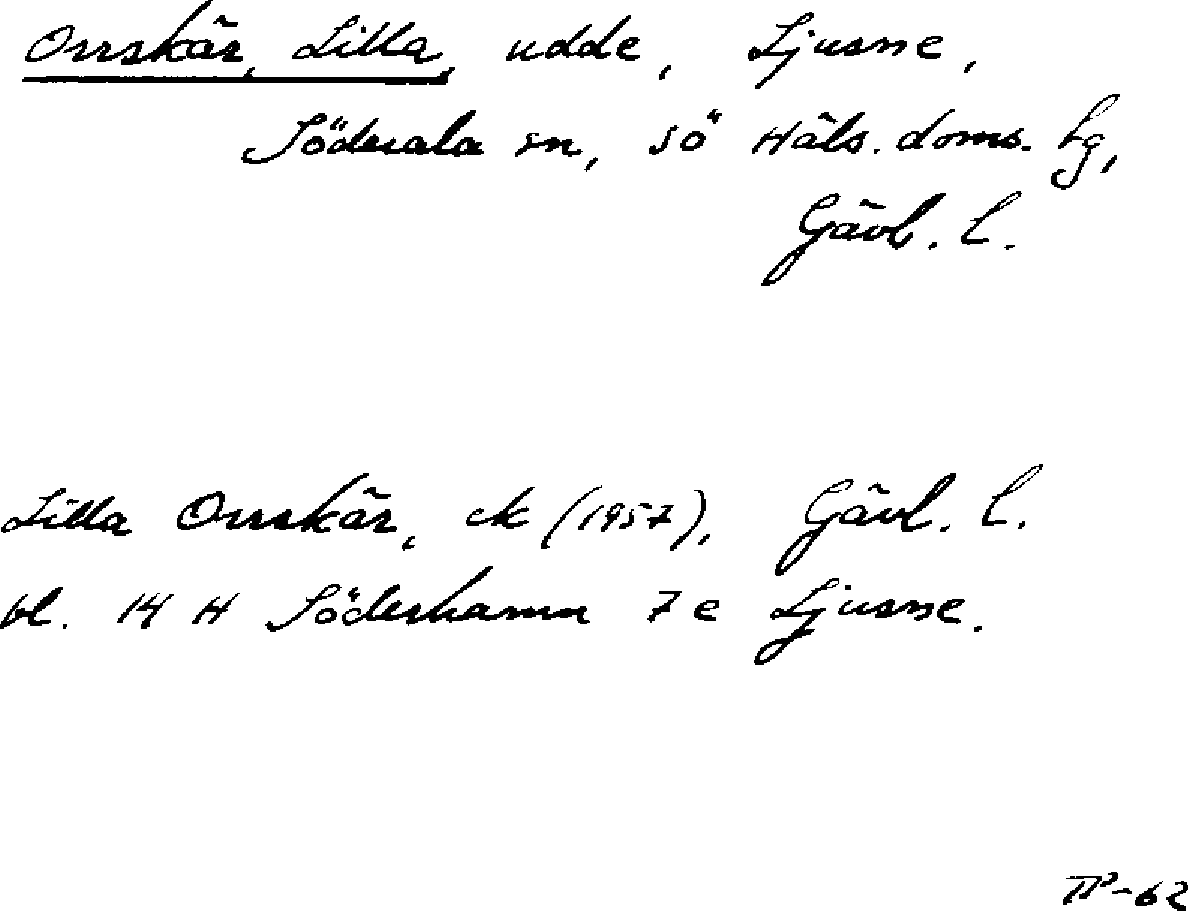 Orrskär, Lilla, udde, Ljusne,
Söderala sn, sö Häls. doms. lg,
Gävl. l.
Lilla Orrskär, ek (1957), Gävl. l.
bl. 14 H Söderhamn 7 e Ljusne.
TP-62